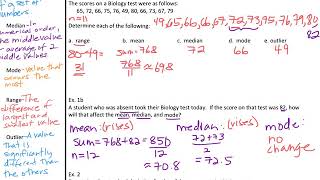 of numbers
Median - In
numerical order,
the middle value
- average of 2
middle values
Mode - value that
occurs the
most
Range - The
difference of
largest and
smallest value
Outlier -
A value that
is significantly
different than
the others
The scores on a Biology test were as follows:
65, 72, 66, 75, 76, 49, 80, 66, 73, 67, 79
n=11
49, 65, 66, 66, 67, 72, 73, 75, 76, 79, 80
82
Determine each of the following:
a. range b. mean c. median d. mode e. outlier
80-49= sum=768 72 66 49
31 768 ≈ 69.8
11
Ex. 1b
A student who was absent took their Biology test today. If the score on that test was 82, how
will that affect the mean, median, and mode?
mean: (rises) median: (rises) mode:
Sum=768+82=850 72+73 no
n=12 12 2 change
=70.8 = 72.5
Ex. 2